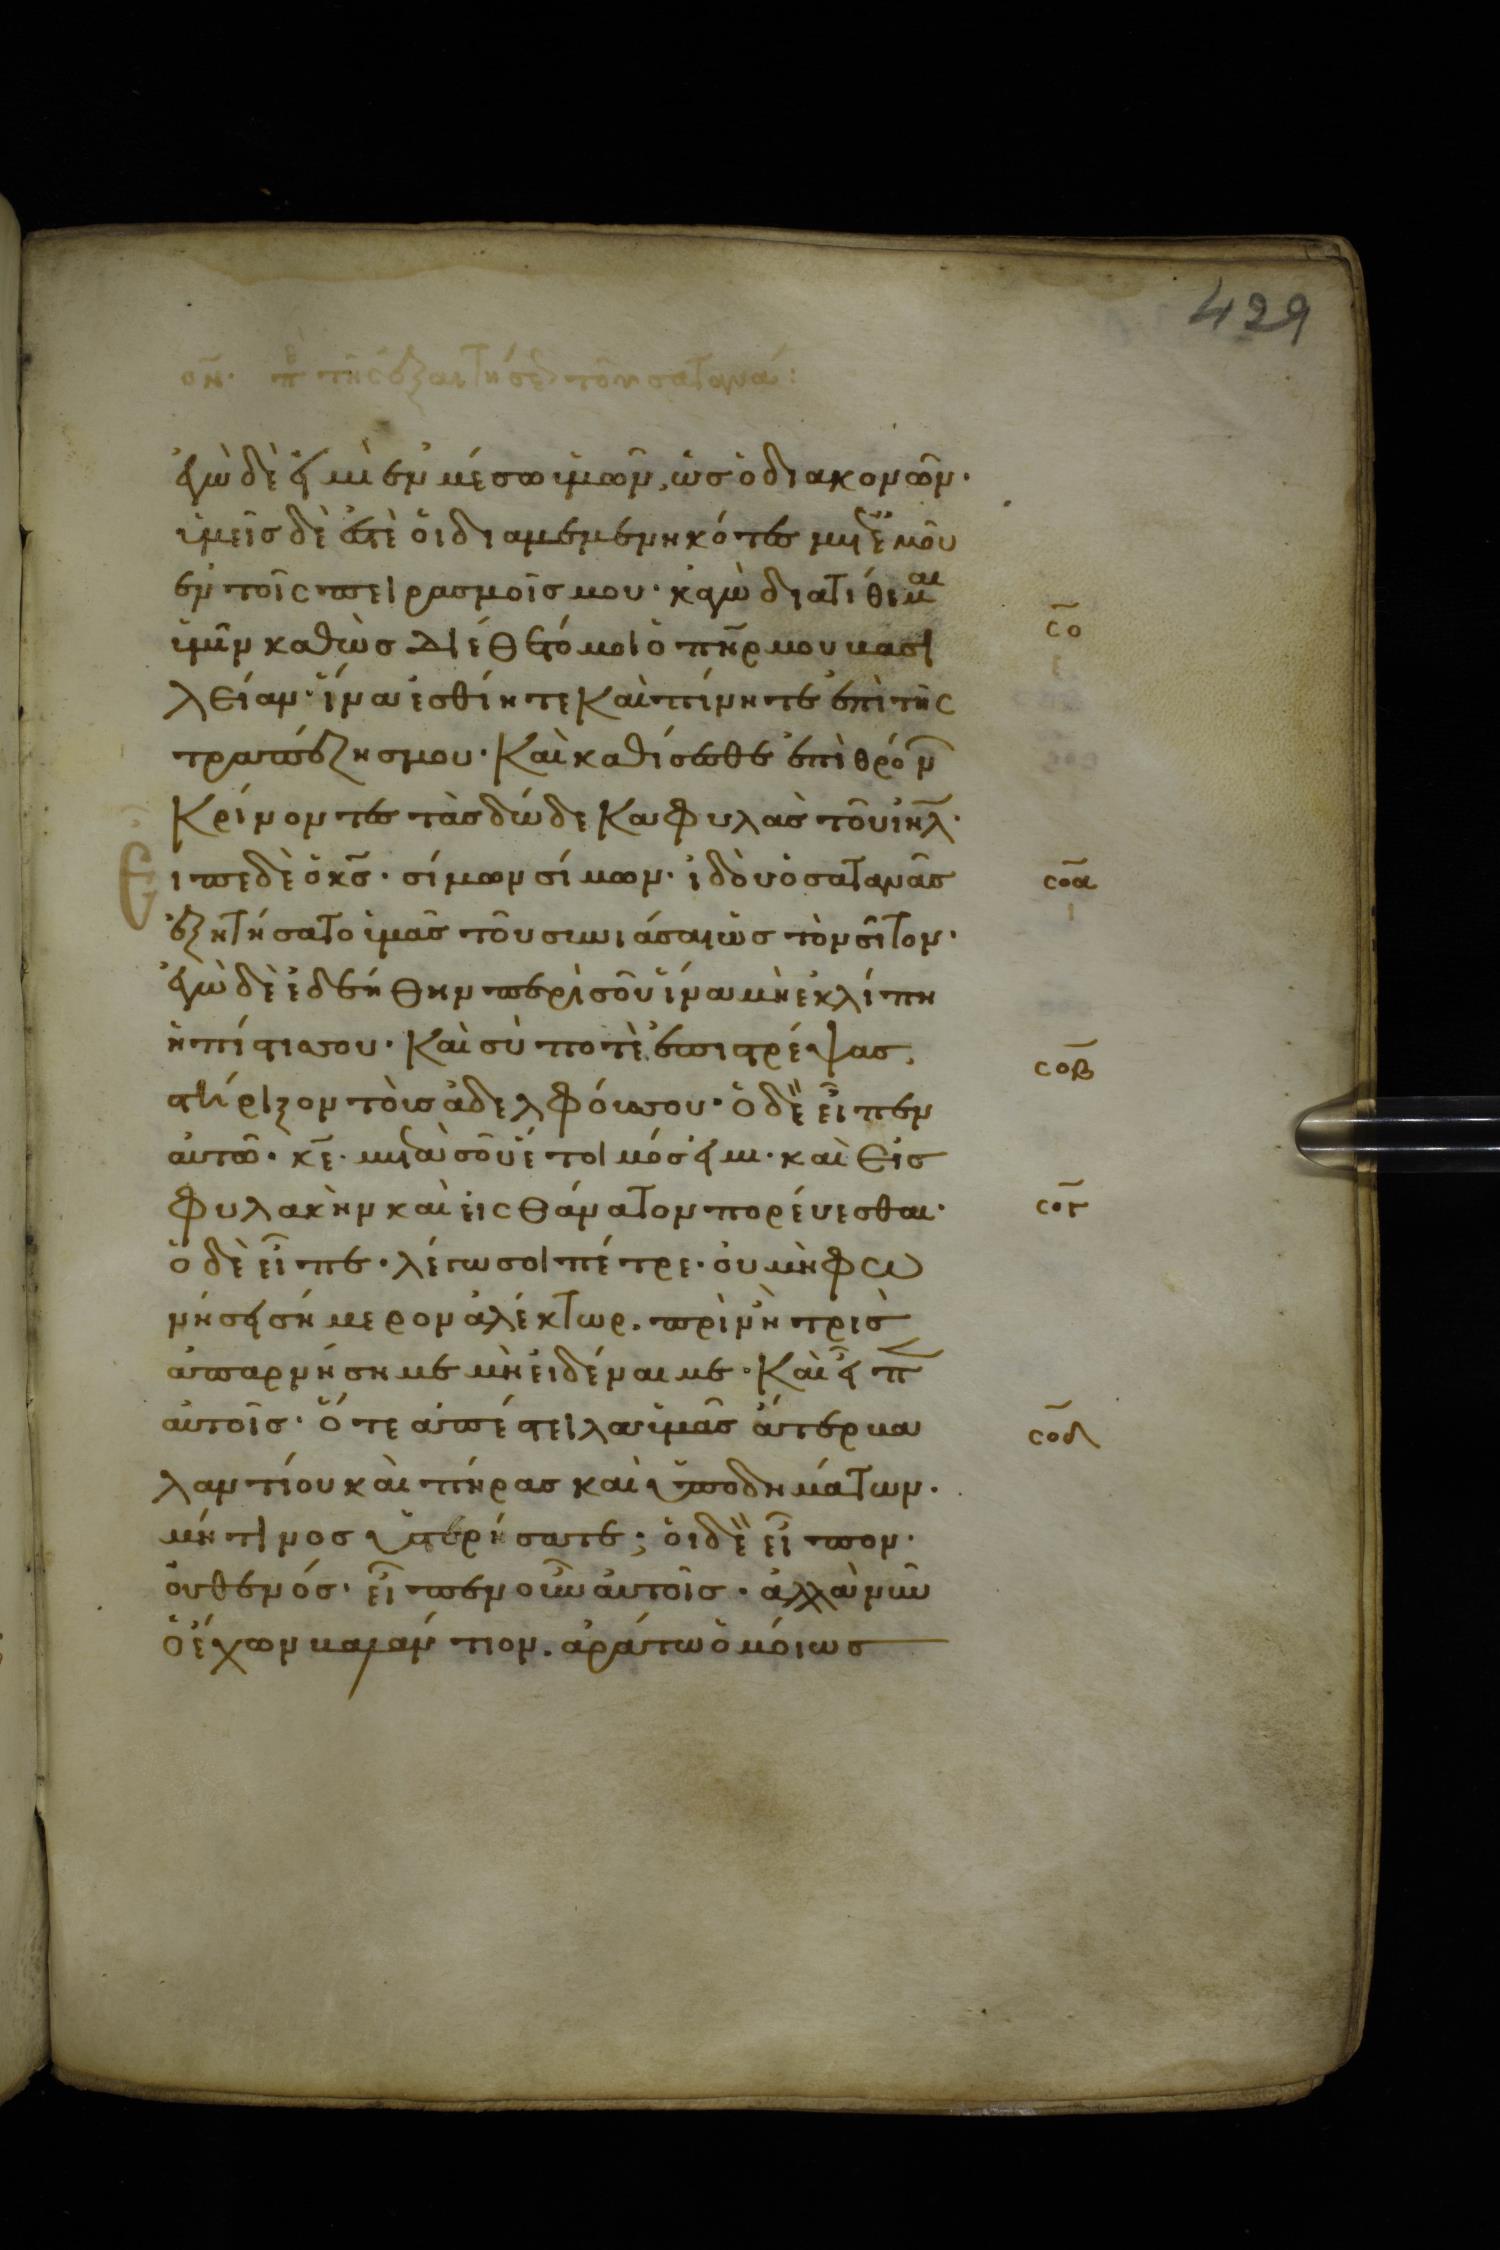 429
οη· πε τῆς ἐξαιτήσε τοῦ σατανά:
ἐγὼ δὲ εἰμὶ ἐν μέσω ὑμῶν, ὡσ ὁ διακονῶν·
ὑμεῖσ δὲ ἐστὲ ὁι διαμεμενηκότεσ μετ ἐμοῦ
ἐν τοῖς πειρασμοῖσ μου· κἀγὼ διατίθεμαι
ὑμῖν καθὼσ διέθετό μοι ὁ πη̅ρ μου βασι
λείαν· ἵνα ἐσθίητε καὶ πίνητε ἐπὶ τῆς
τραπέζησ μου· καὶ καθίσεσθε ἐπὶ θρόν
κρίνοντεσ τὰσ δώδεκα φυλὰσ τοῦ ιη̅λ·
Ειπε δὲ ὁ κ̅σ· σίμων σίμων· ἰδοὺ ὁ σατανᾶσ
ἐξητήσατο ὑμᾶσ τοῦ σινιάσαι ὡσ τὸν σῖτον·
ἐγὼ δὲ ἐδεήθην περὶ σοῦ ἵνα μὴ ἐκλίπη
ἡ πίστισ σου· καὶ σύ ποτὲ ἐπιστρέψασ,
στήριζον τὸυσ ἀδελφόυσ σου· ὁ δὲ εἶπεν
ἀυτῶ· κ̅ε· μετὰ σοῦ ἕτοιμόσ εἰμι· καὶ εἰσ
φυλακὴν καὶ εἰς θάνατον πορέυεσθαι·
ὁ δὲ εἶπε· λέγω σοι πέτρε· ὀυ μὴ φω
νήσει σήμερον ἀλέκτωρ. πρὶν ἢ τρὶσ
ἀπαρνήση με μὴ ἐιδέναι με· Καὶ εἶπ
ἀυτοῖσ· ὅτε ἀπέστειλα ὑμᾶσ ἄτερ βα
λαντίου καὶ πήρασ καὶ ὑποδημάτων·
μή τινοσ ὑστερήσατε; ὁι δὲ εἶπον·
ὀυθενόσ· εἶπεν οὖν ἀυτοῖσ· ἀλλὰ νῦν
ὁ ἔχων βαλάντιον. ἀράτω ὁμοίωσ
σ̅ο
ι
σ̅ο̅α
ι
σ̅ο̅β
σ̅ο̅γ
σ̅ο̅δ